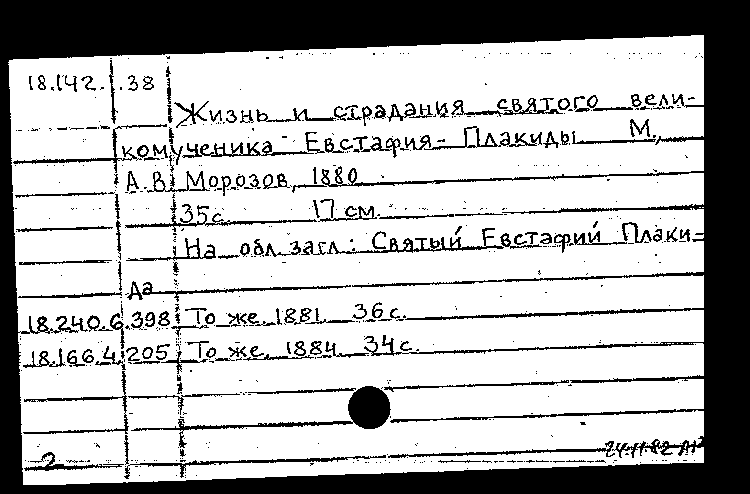 18.142. .38
Жизнь и страдания святого вели-
комученика Евстафия-Плакиды М.,
А.В. Морозов, 1880
35с. 17 см.
На обл. загл.: Святый Евстафий Плаки-
да
18.240.6.398 То же. 1881. 36с.
18.166.4.205 То же. 1884. 34с.
2
24.11.82